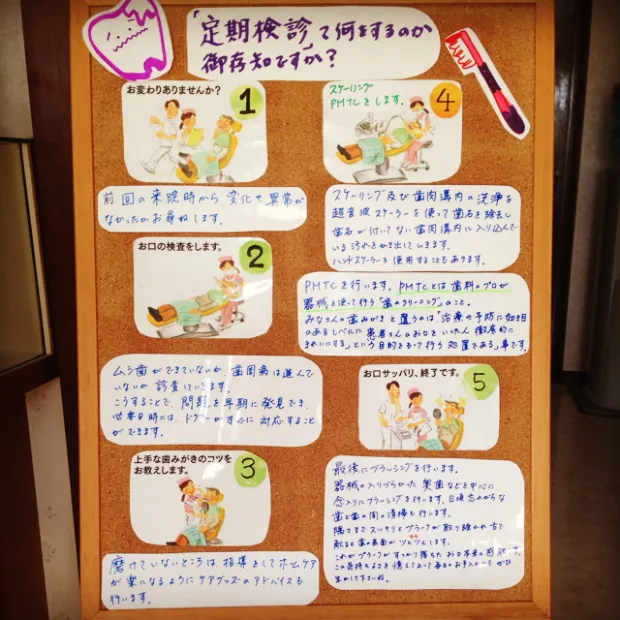 「定期検診」って何をするのか
御存知ですか？
お変わりありませんか？
1
前回の来院時から、変化や異常が
なかったかお尋ねします。
お口の検査をします。
2
ムシ歯ができていないか、歯周病は進んで
いないか診査していきます。
こうすることで、問題を早期に発見でき、
必要な時には、ドクターがすぐに対応すること
ができます。
上手な歯みがきのコツを
お教えします。
3
磨けていないところは指導をしてホームケア
が楽になるようにケアグッズのアドバイスも
行います。
スケーリング
PMTCをします。
4
スケーリング及び歯肉溝内の洗浄を
超音波スケーラーを使って歯石を除去し
歯石が付いてない歯肉溝内に入り込んで
いる汚れをかき出していきます。
ハンドスケーラーを使用することもあります。
PMTCを行います。PMTCとは歯科のプロが
器械を使って行う「歯のクリーニング」のこと。
みなさんの歯みがきと違うのは「治療や予防に効き目
のあるレベルに患者さんのお口をいったん徹底的に
きれいにする」という目的をもって行う処置である事です。
お口サッパリ、終了です。
5
最後にブラッシングを行います。
器械の入りづらかった奥歯などを中心に
念入りにブラッシングを行います。日頃忘れがちな
歯と歯の間の清掃も行います。
隅々までスッキリとプラークが取り除かれ舌で
触ると歯の表面がツルツルします。
これがプラークがすっかり落ちたお口本来の感触です。
この気持ちよさを憶えておいて毎日のお手入れにもぜひ
生かして下さいね。